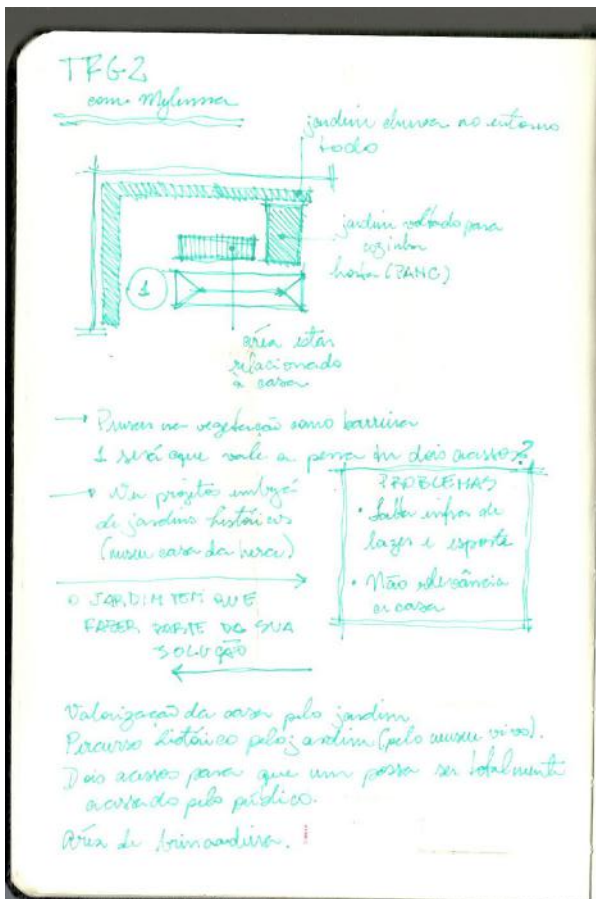 TFG2
com Mylenna
jardim chuva no entorno
todo
jardim voltado para
cozinha
horta (PANC)
1
área estar
relacionado
à casa
→ Pensar na vegetação como barreira
1 será que vale a pena ter dois acessos?
→ Ver projetos
de jardins históricos
(museu casa da hera)
PROBLEMAS
• Falta infra de
lazer e esporte
• Não relevância
a casa
O JARDIM TEM QUE
FAZER PARTE DA SUA
SOLUÇÃO
Valorização da casa pelo jardim
Percurso histórico pelo jardim (pelo museu vivo).
Dois acessos para que um possa ser totalmente
acessado pelo público.
Área de brincadeira.